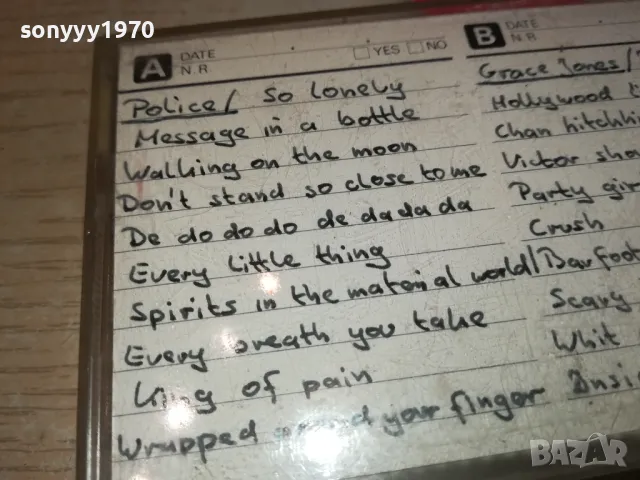 sonyyy1970
A DATE N.R YES NO
B DATE N.R
Police/ So lonely
Message in a bottle
Walking on the moon
Don't stand so close to me
De do do do de da da da
Every little thing
Spirits in the material world/
Every breath you take
King of pain
Wrapped around your finger
Grace Jones/
Hollywood
Chan hitchhi
Victor sho
Party gir
Crush
Barfoot
Scary
Whit
Insi
BAZAR